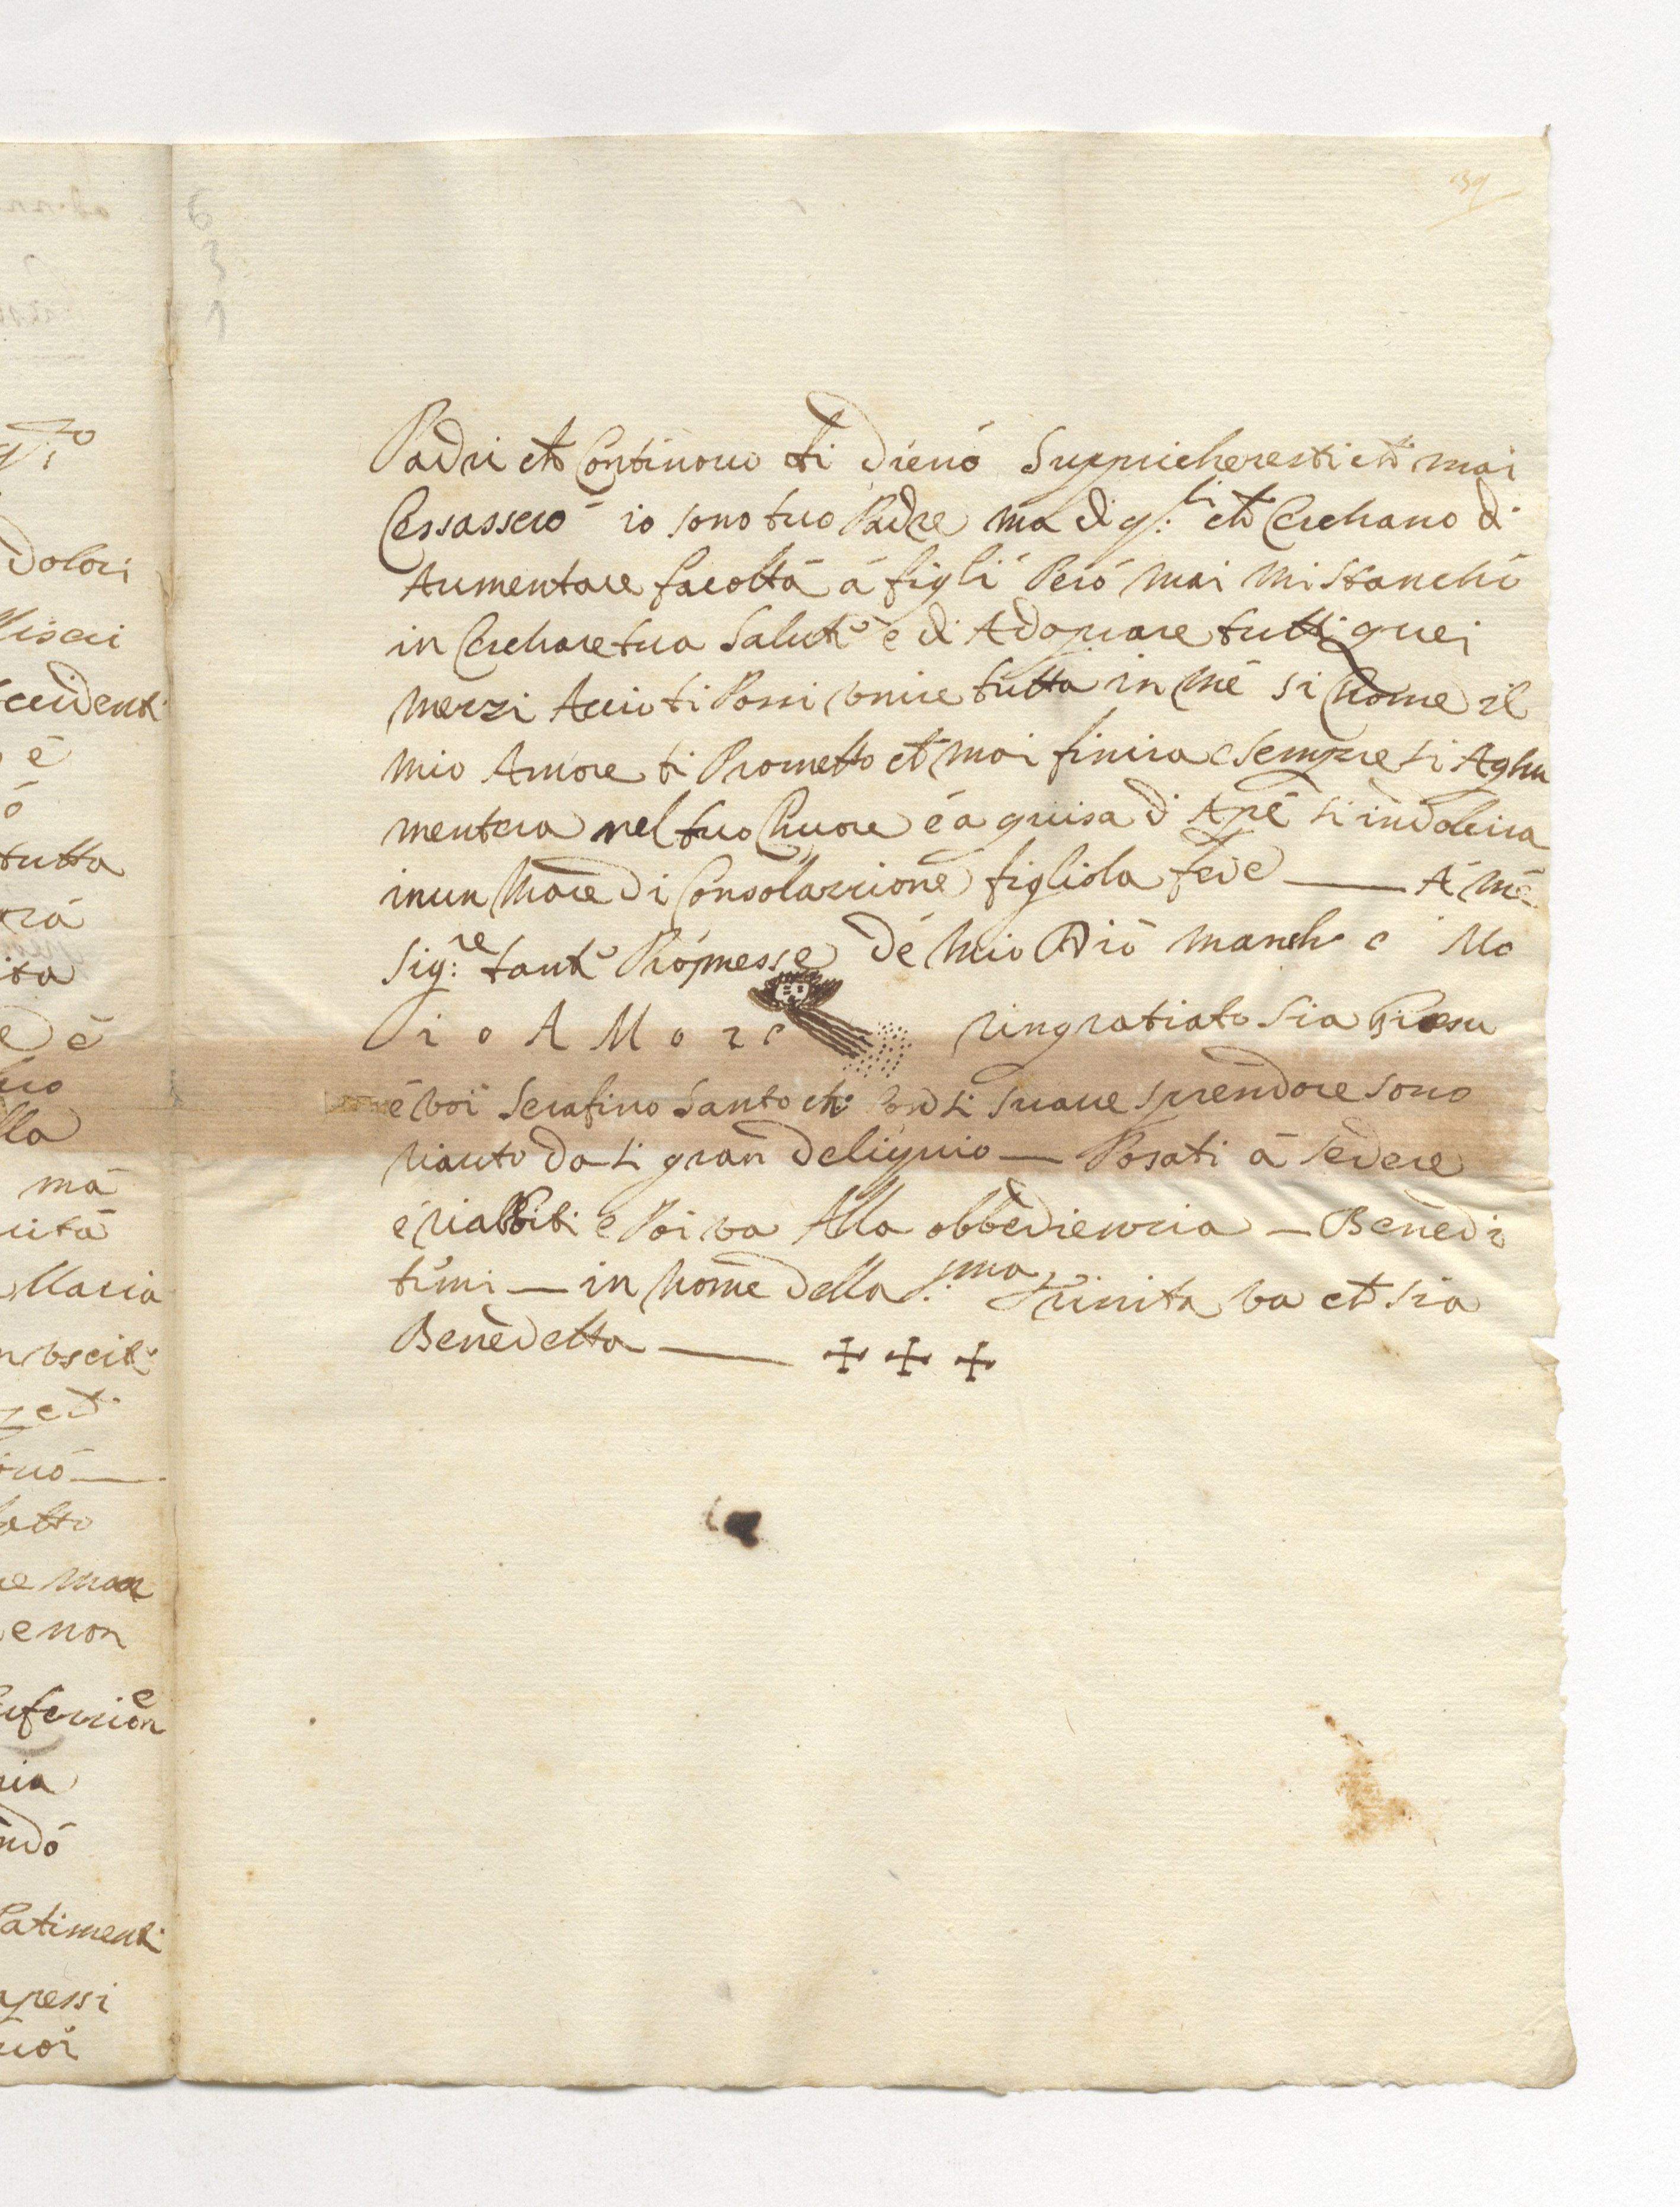 139
6
3
1
Padri ch Continouo ti dienó Suppricheresti ch mai
Cessassero io sono tuo Padre ma di q:li ch Cerchano di
Aumentare facoltá á figli Peró mai mi stanchó
in Cerchare tua Salute e di Adoprare tutti quei
mezzi Accio ti Possi vnire tutta in mé si chome il
mio Amore ti Prometto ch mai finira e sempre si Aghu
mentera nel tuo Chuore é a guisa d Ape si indolcira
in un Mare di Consolazzione figliola fede — A mé
Sig:re tante Prómesse dé mio Dió manch e Mo
i o A M o r e ringratiato Sia Giesu
é voi Serafino Santo ch si suaue sprendore sono
riauto da si gran deliquio — Posati á Sedere
é riabbiti e Poi va Alla obbedienzia — Benedi
timi — in nome della S:ma Trinita va ch sia
Benedetta — + + +
dolori
Miseri
ccidenti
é
ó
tutta
rá
ita
é
lla
má
uitá
Maria
etto
e non
ria
ndó
Patimenti
pressi